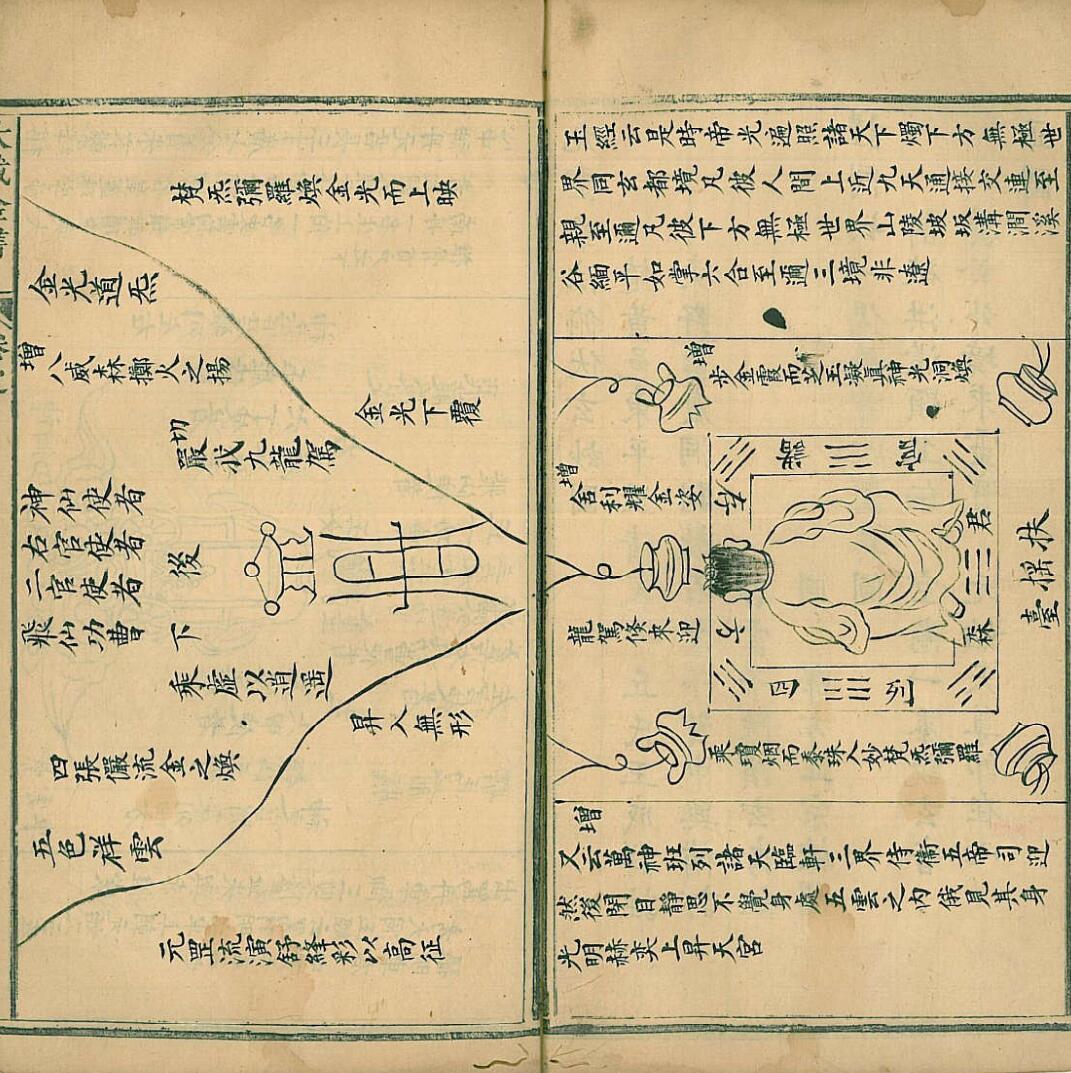 梵炁彌羅煥金光而上映
金光道炁
增
八威森擲火之揚
金光下覆
切
嚴我九龍駕
神仙使者
右官使者
後
二官使者
飛仙功曹
下
乘虛以逍遥
昇入無形
四張儼流金之煥
五色祥雲
元罡流演舒絳彩以高征
王經云是時帝光遍照諸天下燭下方無極世
界同玄都境凡彼人間上近九天通接交連至
親至邇凡彼下方無極世界山陵坡坂溝澗溪
谷緬平如掌六合至邇三境非遼
增
步金霞而芝玉凝真神光洞煥
增
舍利耀金姿
君
扶
摇
臺
龍駕倏來迎
森
四
列
乘瓊烟而黍珠入妙梵炁彌羅
增
又云萬神班列諸天臨軒三界侍衛五帝司迎
然後閉目靜思不覺身處五雲之内俄見其身
光明赫奕上昇天宮